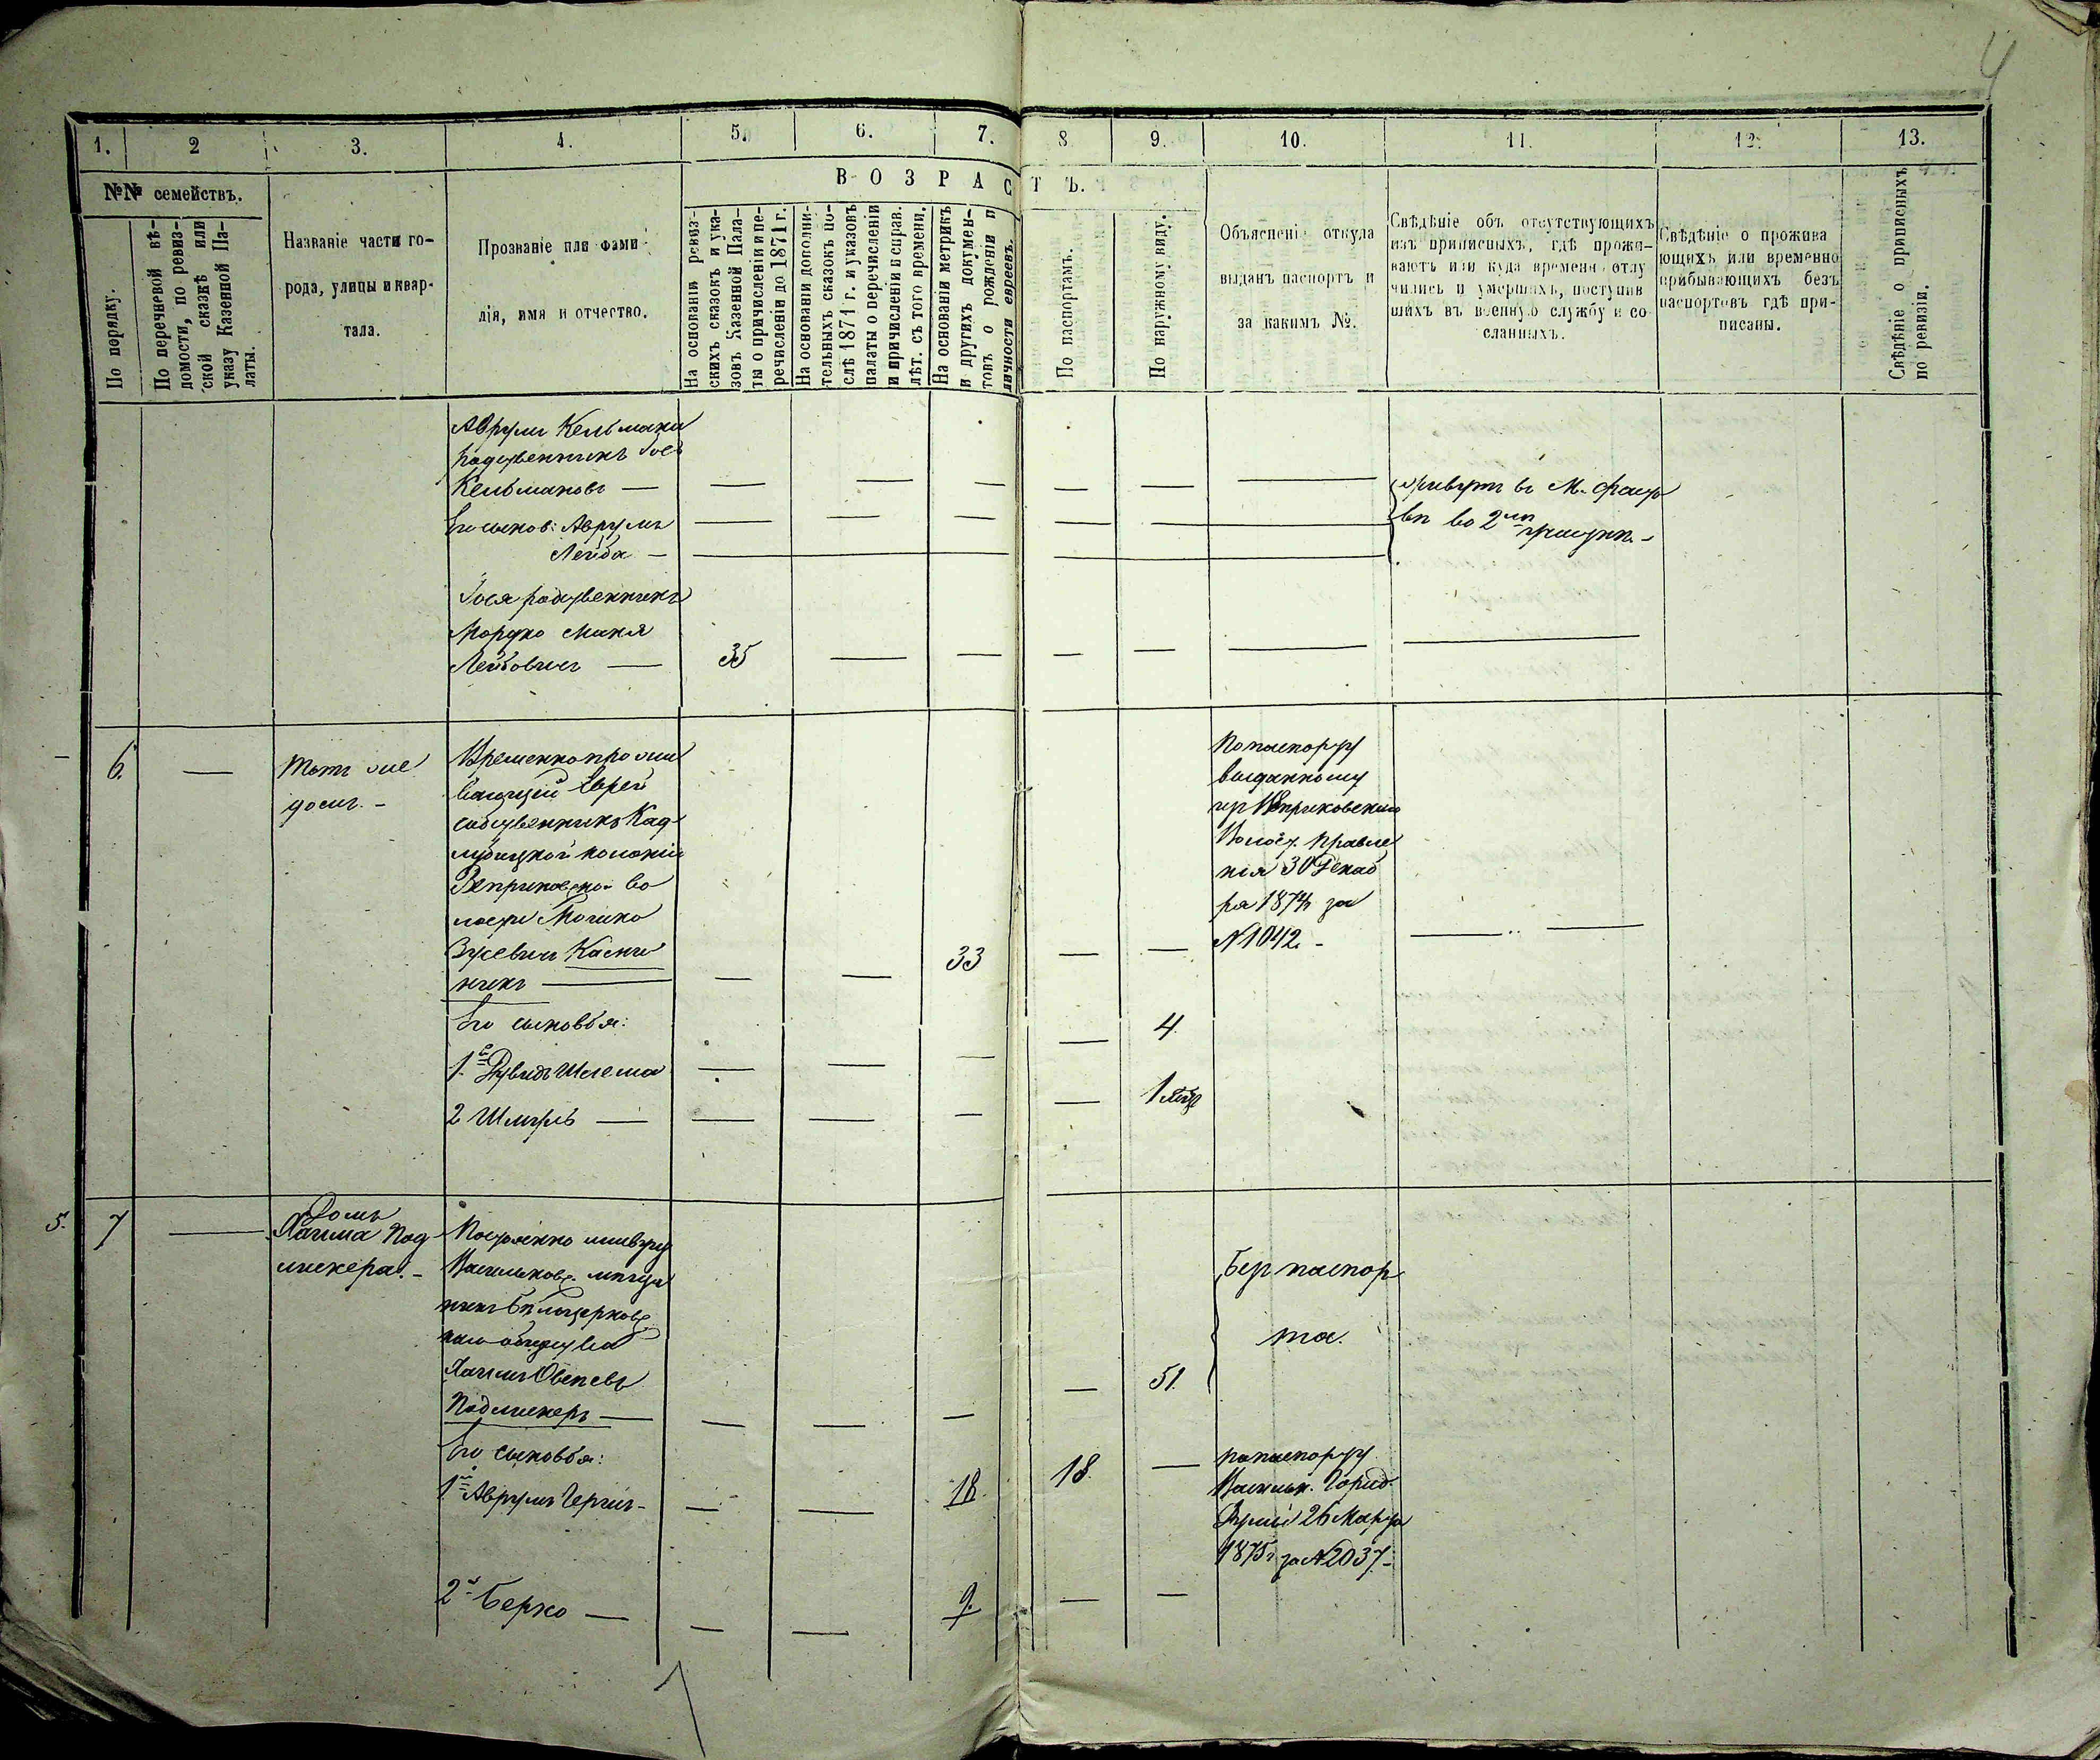 4
1. 2 3. 4. 5. 6. 7. 8 9. 10. 11. 12. 13.
№№ семействъ.
По порядку.
По перечневой вѣ-
домости, по ревиз-
ской сказкѣ или
указу Казенной Па-
латы.
Названіе части го-
рода, улицы и квар-
тала.
Прозваніе или фами
лія, имя и отчество.
ВОЗРАСТЪ.
На основаніи ревиз-
скихъ сказокъ и ука-
зовъ Казенной Пала-
ты о причисленіи и пе-
речисленіи до 1871 г.
На основаніи дополни-
тельныхъ сказокъ по-
слѣ 1871 г. и указовъ
палаты о перечисленіи
и причисленіи и справ.
лѣт. съ того времени.
На основаніи метрикъ
и другихъ докумен-
товъ о рожденіи и
личности евреевъ.
По паспортамъ.
По наружному виду.
Объясненіе откуда
выданъ паспортъ и
за какимъ №.
Свѣдѣніе объ отсутствующихъ
изъ приписныхъ, гдѣ прожи-
ваютъ или куда временно отлу
чились и умершихъ, поступив
шихъ въ военную службу и со
сланныхъ.
Свѣдѣніе о прожива
ющихъ или временно
прибывающихъ безъ
паспортовъ гдѣ при-
писаны.
Свѣдѣніе о приписныхъ
по ревизіи.
Аврумъ Кельмана
родственникъ
Кельмановъ —
Его сынов: Аврумъ
Лейба —
живутъ въ М.
во 2мъ
родственникъ
Мордко Маня
Лейбовичъ — 35
6. — Тотъ же
домъ. —
Временно прожи
вающій Еврей
собственникъ Кад
лубицкой колоніи
Веприковской во
лости Мошко
Зусевичъ Камі
никъ — 33
По паспорту
выданному
изъ Веприковскаго
Волост. Правле
нія 30 Декаб
ря 1874 г. за
№ 1042. —
Его сыновья:
1й Дувидъ Шлема 4.
2 Шмуль — 1
5. 7 — Домъ
Хаима Под
лискера. —
Постоянно живущ
Васильковск. мѣща
нинъ Бѣлоцерковс
каго общества
Хаимъ Овсѣевъ
Подлискеръ — 51.
Безъ паспор
та.
Его сыновья:
1й Аврумъ Гершъ — 18. 18.
по паспорту
Васильк. Город.
Думы 26 Марта
1875 г за № 2037 —
2й Берко — 9.